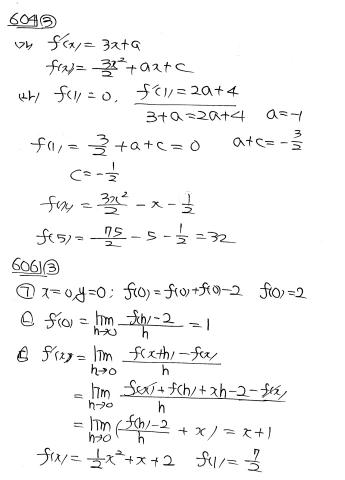 604) ③
(가) f'(x) = 3x+a
f(x) = 3x²/2 + ax + c
(나) f(1) = 0, f'(1) = 2a+4
3+a = 2a+4 a = -1
f(1) = 3/2 + a + c = 0 a+c = -3/2
c = -1/2
f(x) = 3x²/2 - x - 1/2
f(5) = 75/2 - 5 - 1/2 = 32
606) ③
㉠ x=0, y=0; f(0) = f(0)+f(0)-2 f(0)=2
㉡ f'(0) = lim h→0 f(h)-2 / h = 1
㉢ f'(x) = lim h→0 f(x+h)-f(x) / h
= lim h→0 f(x)+f(h)+xh-2-f(x) / h
= lim h→0 (f(h)-2 / h + x) = x+1
f(x) = 1/2 x² + x + 2 f(1) = 7/2